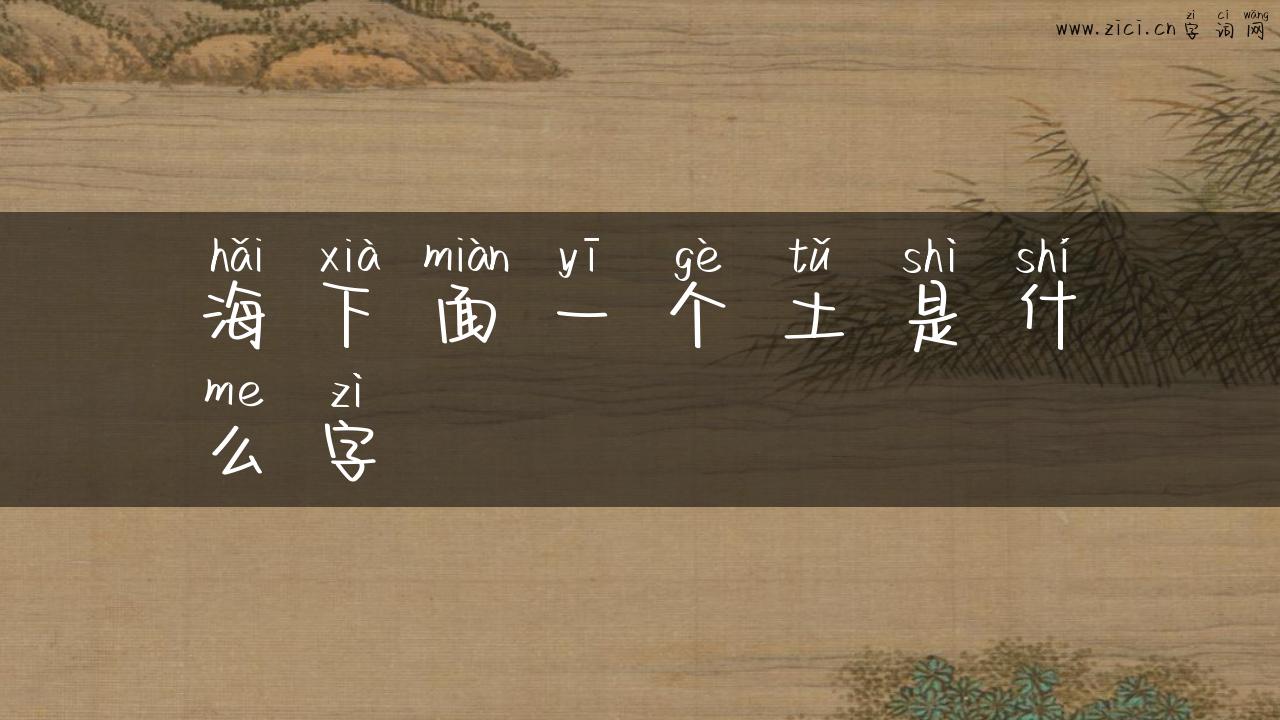 zì cí wǎng
www.zici.cn字词网
hǎi xià miàn yī gè tǔ shì shí
海下面一个土是什
me zì
么字